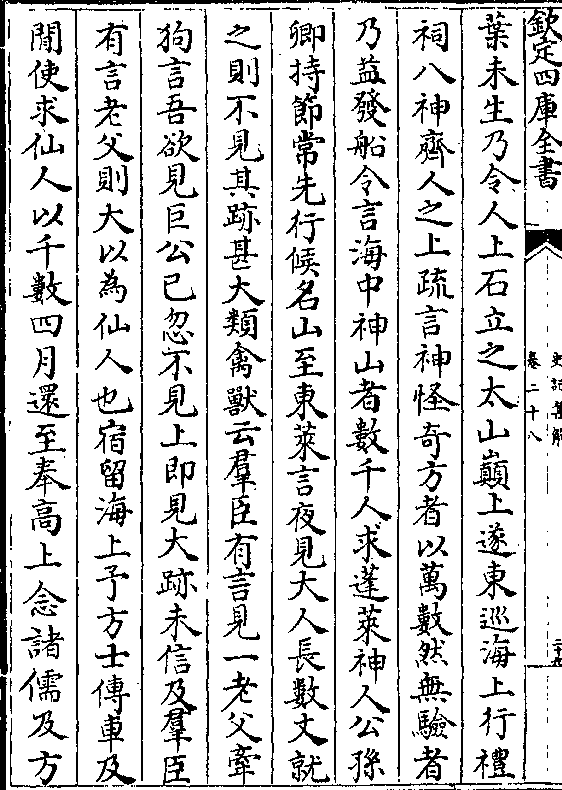 欽定四庫全書
史記集解
卷二十八
葉未生乃令人上石立之太山巔上遂東巡海上行禮
祠八神齊人之上疏言神怪奇方者以萬數然無驗者
乃益發船令言海中神山者數千人求蓬萊神人公孫
卿持節常先行候名山至東萊言夜見大人長數丈就
之則不見其跡甚大類禽獸云羣臣有言見一老父牽
狗言吾欲見巨公已忽不見上即見大跡未信及羣臣
有言老父則大以為仙人也宿留海上予方士傳車及
閒使求仙人以千數四月還至奉高上念諸儒及方